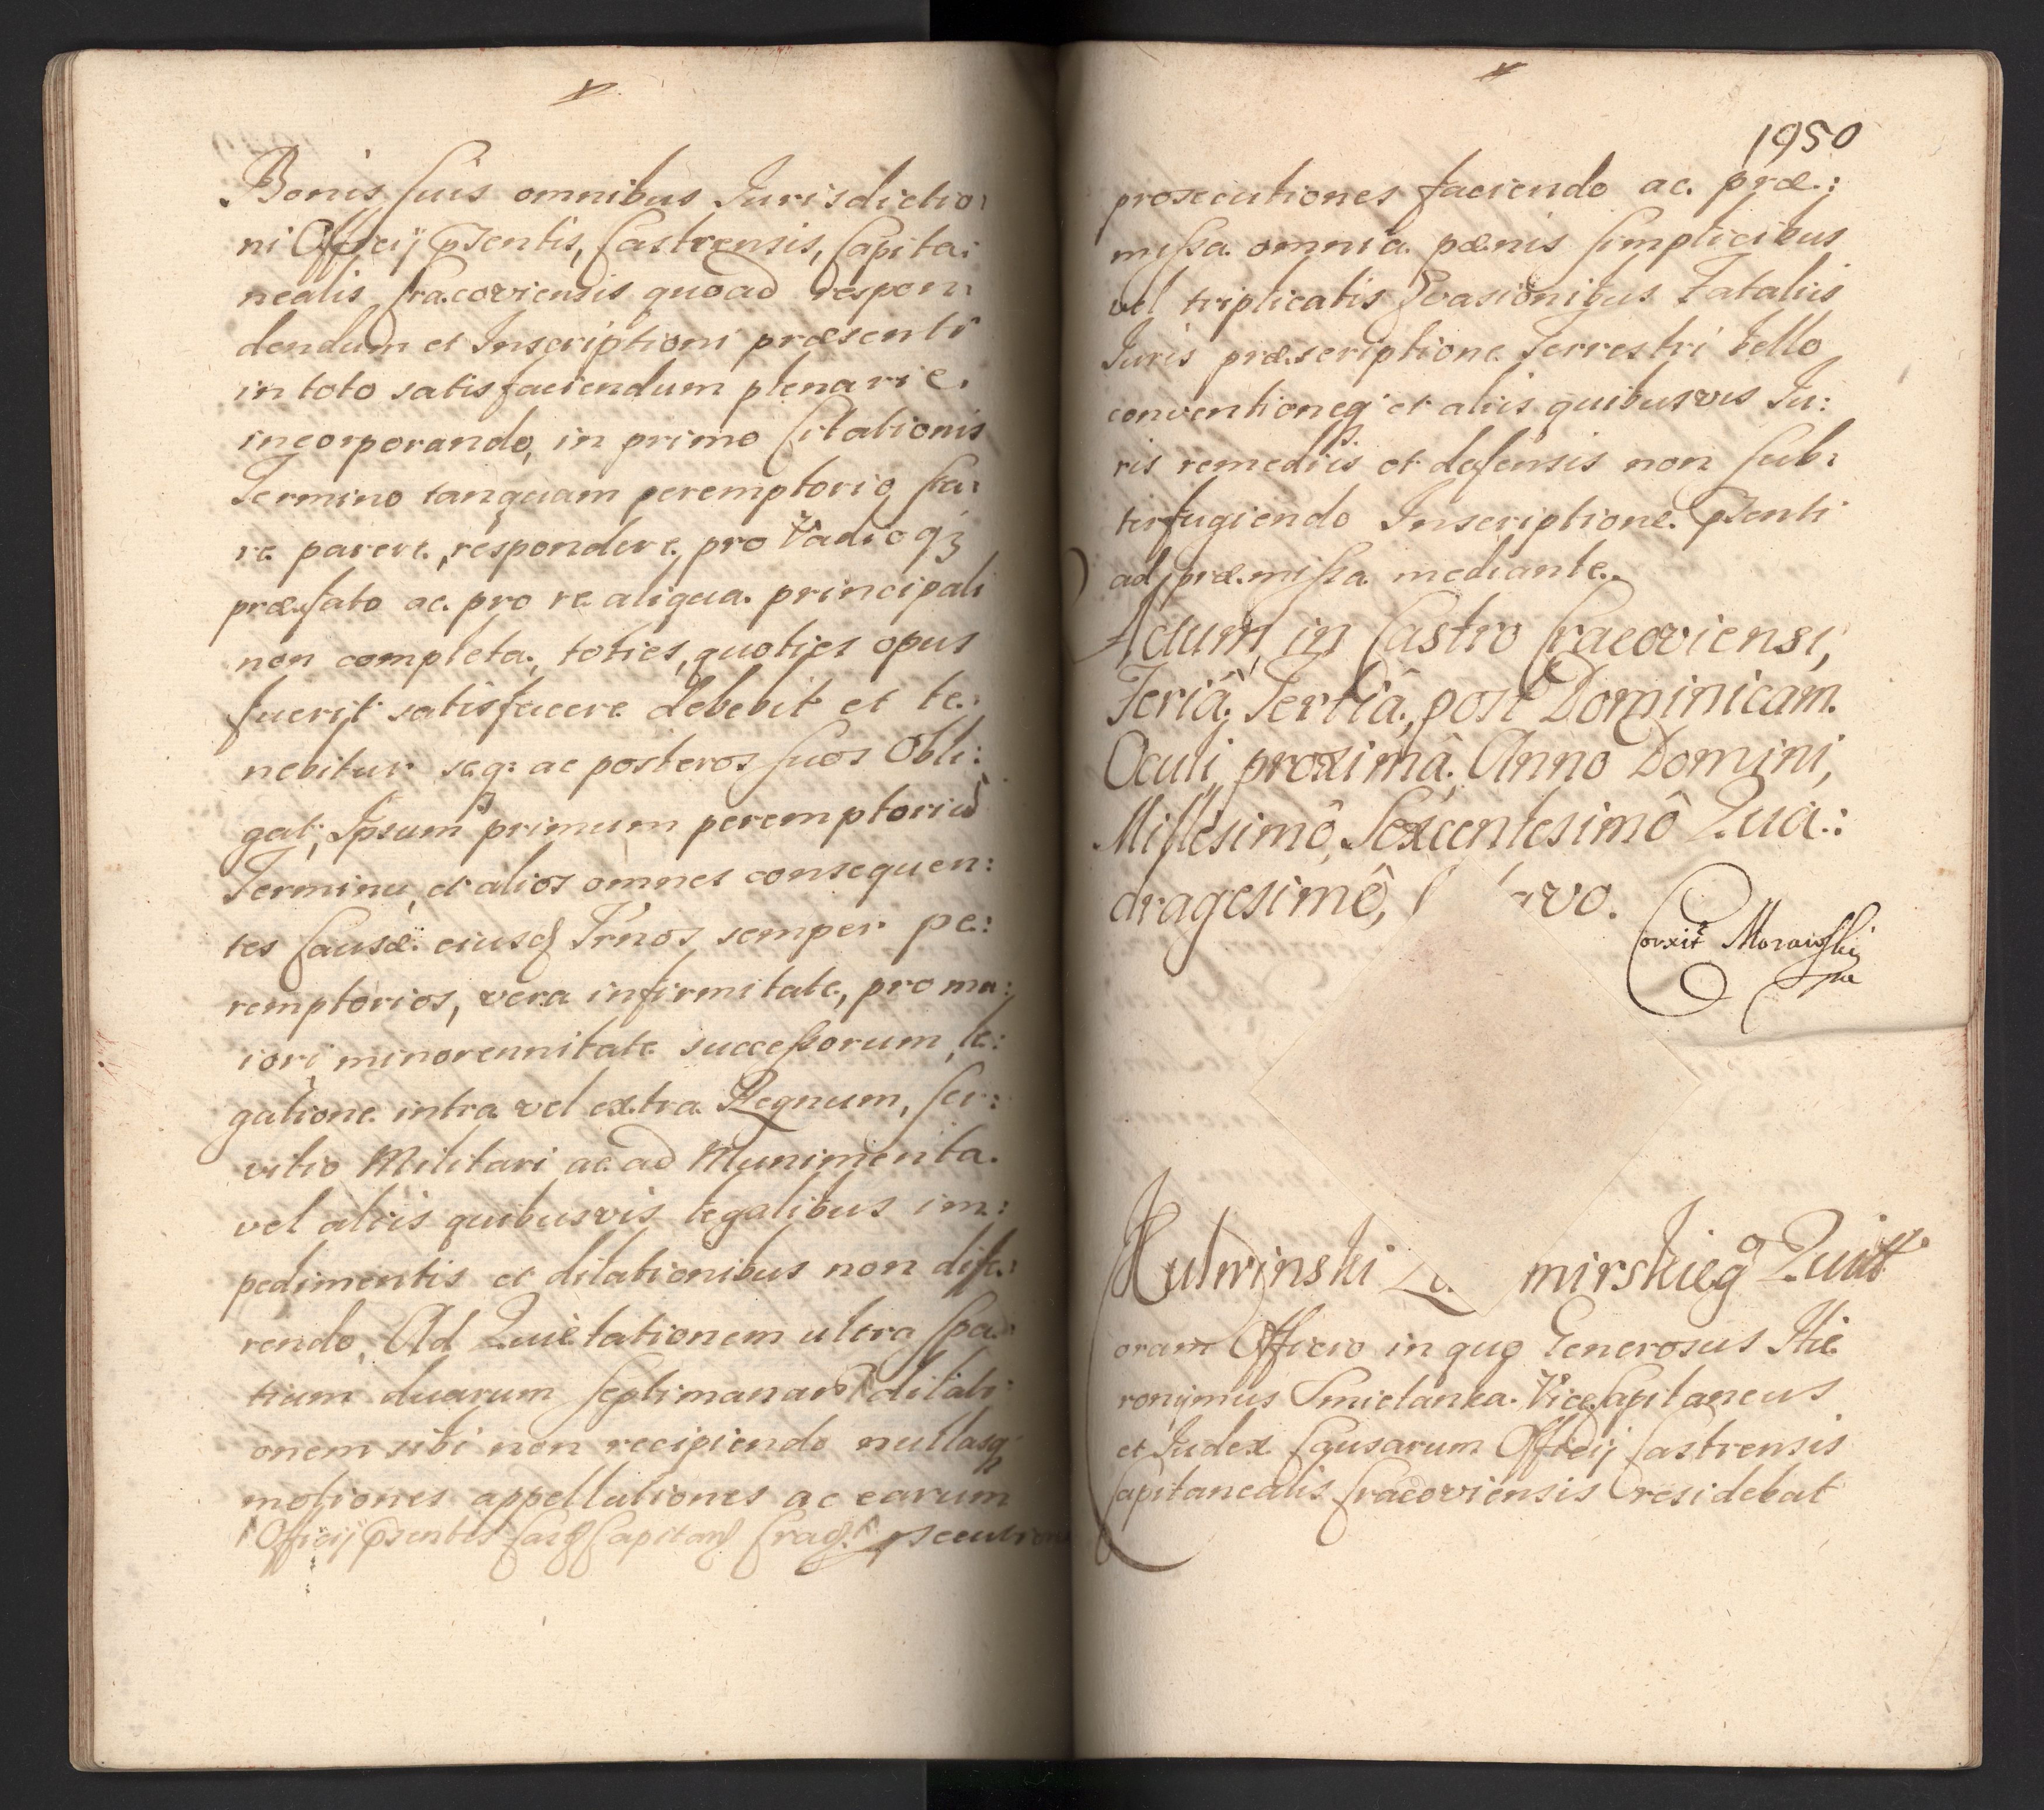 Bonis suis omnibus Jurisdictio:
ni Officij pſentis, Castrensis, Capita:
nealis Cracoviensis quoad respon:
dendum et Inscriptioni præsenti
in toto satisfaciendum plenarie.
incorporando, in primo Citationis
Termino tanquam peremptorio sta:
re parere, respondere, pro Vadioqꝫ
præfato ac pro re aliqua principali
non completa, toties, quoties opus
fuerit satisfacere debebit et te:
nebitur seqꝫ ac posteros suos Obli:
gat, Ipsum primum peremptoriũ
Terminũ, et alios omnes consequen:
tes Causæ eiusq Tr̃nos semper pe:
remptorios, vera infirmitate, pro ma:
iori, minorennitate successorum, le:
gatione intra vel extra Regnum, ser:
vitio Militari ac ad Munimenta
vel aliis quibusvis legalibus im:
pedimentis et dilationibus non diffe:
rendo, Ad Quietationem ultra spa:
tium duarum septimanarũ dilati
onem sibi non recipiendo nullasqꝫ
motiones appellationes ac earum
Officij pſentis
1950
prosecutiones faciendo ac. præ:
missa omnia pænis simplicibus
vel triplicatis Evasionibus Fataliis
Juris præscriptione Terrestri bello
conventioneqꝫ et aliis quibusvis Ju:
ris remediis et defensis non sub:
terfugiendo Inscriptione pſenti
ad præmissa mediante.
Actum in Castro Cracoviensi,
Feriâ Tertiâ, post Dominicam
Oculi proximâ. Anno Domini,
Millesimô, Sexcentesimô Qua:
dragesimô, vo.
Corxit Morawski
mpa
Kulwinski mirskieg° Quitt
oram Officio in quo Generosus Hie
ronijmus Smietanka ViceCapitaneus
et Judex Causarum Officij Castrensis
Capitanealis Cracoviensis residebat